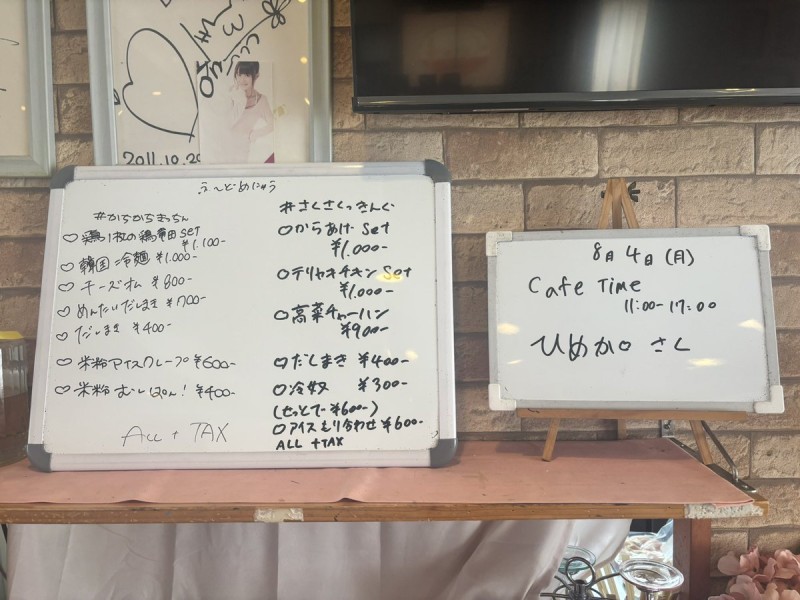 2011.10.20
ふ〜どめにゅう
#かちかちきっちん
♡鶏1枚の鶏竜田set
¥1.100-
♡韓国冷麺 ¥1.000-
♡チーズオム ¥800-
♡めんたいだしまき ¥700-
♡だしまき ¥400-
♡米粉アイスクレープ ¥600-
♡米粉むしぱん! ¥400-
ALL + TAX
#さくさくっきんぐ
○からあげ set
¥1.000-
○テリヤキチキン set
¥1.000-
○高菜チャーハン
¥900-
○だしまき ¥400-
○冷奴 ¥300-
(せっとで ¥600-)
○アイスもり合わせ ¥600-
ALL +TAX
8月4日(月)
Cafe Time
11:00-17:00
ひめか○さく